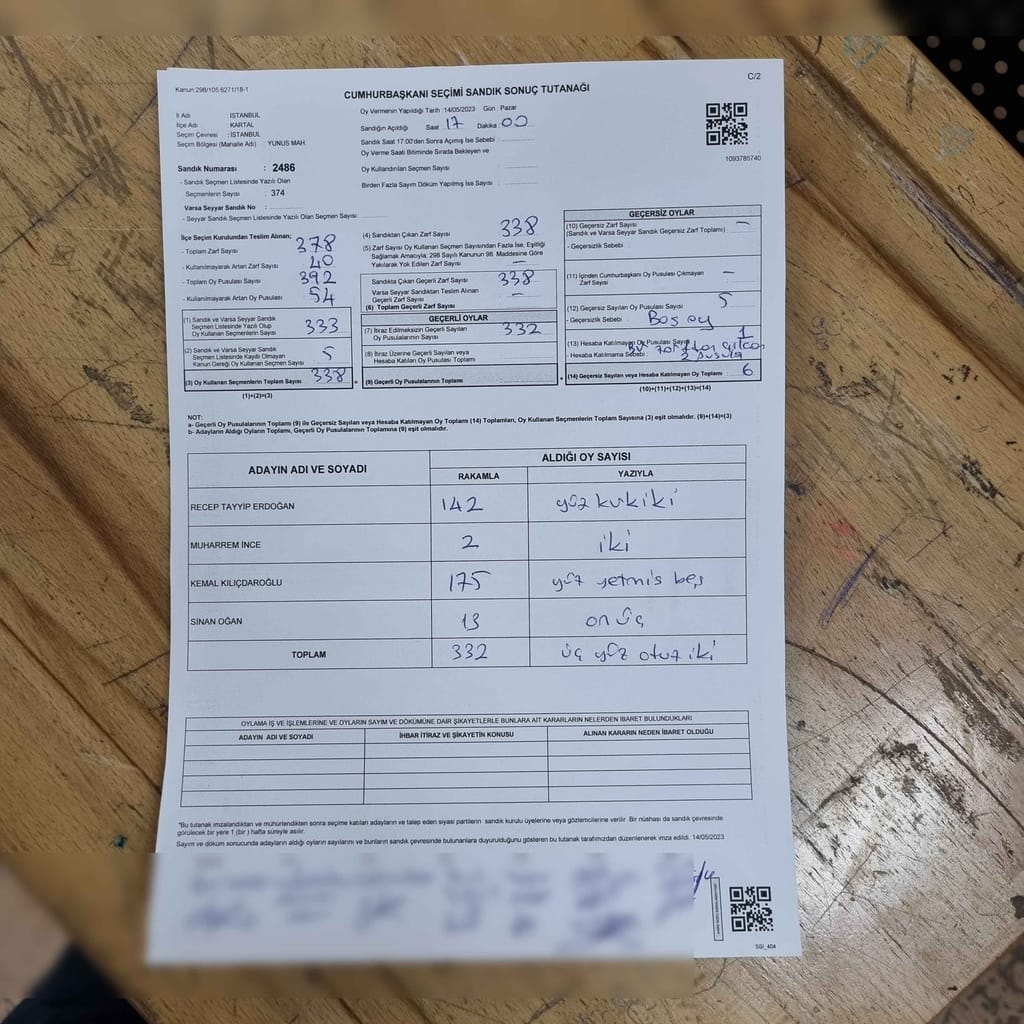 Kanun:298/105.6271/18-1
C/2
CUMHURBAŞKANI SEÇİMİ SANDIK SONUÇ TUTANAĞI
İl Adı : İSTANBUL
İlçe Adı : KARTAL
Seçim Çevresi : İSTANBUL
Seçim Bölgesi (Mahalle Adı) : YUNUS MAH.
Sandık Numarası : 2486
- Sandık Seçmen Listesinde Yazılı Olan
Seçmenlerin Sayısı : 374
Varsa Seyyar Sandık No :
- Seyyar Sandık Seçmen Listesinde Yazılı Olan Seçmen Sayısı
Oy Vermenin Yapıldığı Tarih :14/05/2023 Gün : Pazar
Sandığın Açıldığı Saat 17 Dakika 00
Sandık Saat 17:00'den Sonra Açımış İse Sebebi :
Oy Verme Saati Bitiminde Sırada Bekleyen ve
Oy Kullandırılan Seçmen Sayısı :
Birden Fazla Sayım Döküm Yapılmış İse Sayısı :
1093785740
İlçe Seçim Kurulundan Teslim Alınan;
- Toplam Zarf Sayısı 378
- Kullanılmayarak Artan Zarf Sayısı 40
- Toplam Oy Pusulası Sayısı 392
- Kullanılmayarak Artan Oy Pusulası 54
(1) Sandık ve Varsa Seyyar Sandık
Seçmen Listesinde Yazılı Olup
Oy Kullanan Seçmenlerin Sayısı 333
(2) Sandık ve Varsa Seyyar Sandık
Seçmen Listesinde Kayıtlı Olmayan
Kanun Gereği Oy Kullanan Seçmen Sayısı 5
(3) Oy Kullanan Seçmenlerin Toplam Sayısı 338
(1)+(2)=(3)
(4) Sandıktan Çıkan Zarf Sayısı 338
(5) Zarf Sayısı Oy Kullanan Seçmen Sayısından Fazla İse, Eşitliği
Sağlamak Amacıyla, 298 Sayılı Kanunun 98. Maddesine Göre
Yakılarak Yok Edilen Zarf Sayısı –
Sandıkta Çıkan Geçerli Zarf Sayısı 338
Varsa Seyyar Sandıktan Teslim Alınan
Geçerli Zarf Sayısı –
(6) Toplam Geçerli Zarf Sayısı
GEÇERLİ OYLAR
(7) İtiraz Edilmeksizin Geçerli Sayılan
Oy Pusulasının Sayısı 332
(8) İtiraz Üzerine Geçerli Sayılan veya
Hesaba Katılan Oy Pusulası Toplamı
(9) Geçerli Oy Pusulalarının Toplamı
GEÇERSİZ OYLAR
(10) Geçersiz Zarf Sayısı –
(Sandık ve Varsa Seyyar Sandık Geçersiz Zarf Toplamı)
- Geçersizlik Sebebi
(11) İçinden Cumhurbaşkanı Oy Pusulası Çıkmayan –
Zarf Sayısı
(12) Geçersiz Sayılan Oy Pusulası Sayısı 5
- Geçersizlik Sebebi : Boş oy
(13) Hesaba Katılmayan Oy Pusulası Sayısı 1
- Hesaba Katılmama Sebebi : Bir zarftan çıkan
2 pusula
(14) Geçersiz Sayılan veya Hesaba Katılmayan Oy Toplamı 6
(10)+(11)+(12)+(13)=(14)
NOT:
a- Geçerli Oy Pusulalarının Toplamı (9) ile Geçersiz Sayılan veya Hesaba Katılmayan Oy Toplamı (14) Toplamları, Oy Kullanan Seçmenlerin Toplam Sayısına (3) eşit olmalıdır. (9)+(14)=(3)
b- Adayların Aldığı Oyların Toplamı, Geçerli Oy Pusulalarının Toplamına (9) eşit olmalıdır.
ADAYIN ADI VE SOYADI
ALDIĞI OY SAYISI
RAKAMLA YAZIYLA
RECEP TAYYİP ERDOĞAN 142 yüz kırk iki
MUHARREM İNCE 2 iki
KEMAL KILIÇDAROĞLU 175 yüz yetmis beş
SİNAN OĞAN 13 on üç
TOPLAM 332 üç yüz otuz iki
OYLAMA İŞ VE İŞLEMLERİNE VE OYLARIN SAYIM VE DÖKÜMÜNE DAİR ŞİKAYETLERLE BUNLARA AİT KARARLARIN NELERDEN İBARET BULUNDUKLARI
ADAYIN ADI VE SOYADI İHBAR İTİRAZ VE ŞİKAYETİN KONUSU ALINAN KARARIN NEDEN İBARET OLDUĞU
*Bu tutanak imzalandıktan ve mühürlendikten sonra seçime katılan adayların ve talep eden siyasi partilerin sandık kurulu üyelerine veya gözlemcilerine verilir. Bir nüshası da sandık çevresinde
görülecek bir yere 1 (bir) hafta süreyle asılır.
Sayım ve döküm sonucunda adayların aldığı oyların sayılarını ve bunların sandık çevresinde bulunanlara duyurulduğunu gösteren bu tutanak tarafımızdan düzenlenerek imza edildi. 14/05/2023
SSI_404